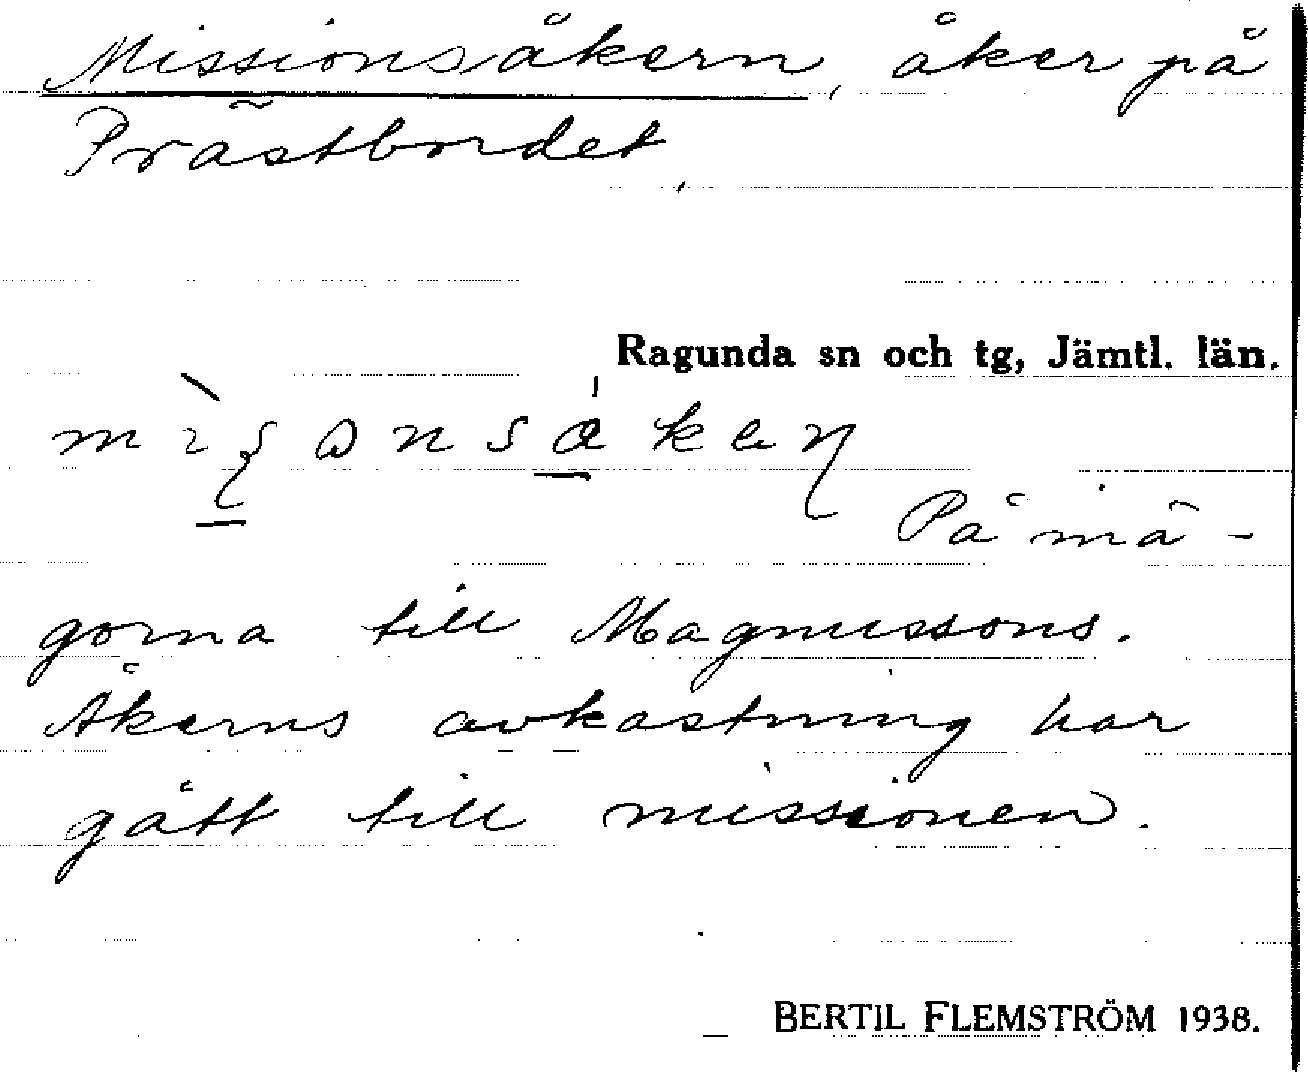 Missionsåkern, åker på
Prästbordet,
Ragunda sn och tg, Jämtl. län.
På mä-
gorna till Magnussons.
Åkerns avkastning har
gått till missionen.
BERTIL FLEMSTRÖM 1938.